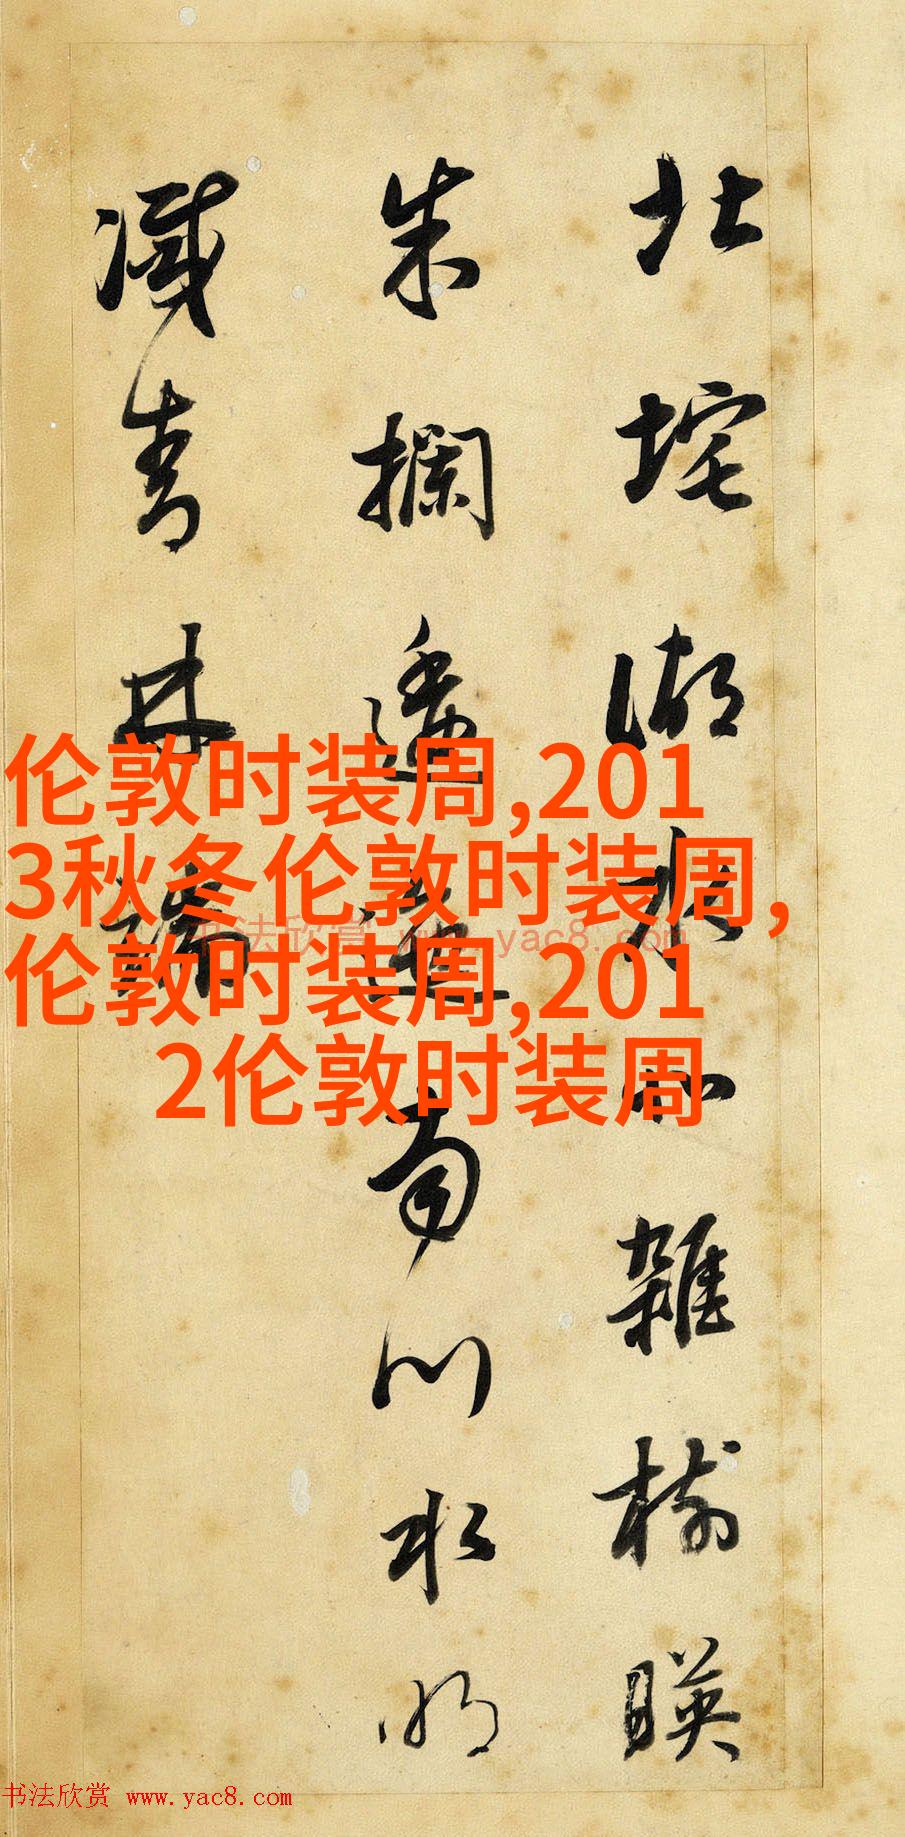 北垞湖水北雜樹暎
朱欄逶迤南川水明
滅青林端
伦敦时装周,201
3秋冬伦敦时装周,
伦敦时装周,201
2伦敦时装周
书法欣赏 www.yac8.com
书法欣赏 www.yac8.com